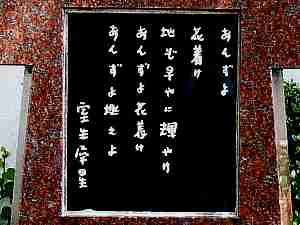 あんずよ
花着け
地ぞ早やに輝やけ
あんずよ花着け
あんずよ燃えよ
室生犀星